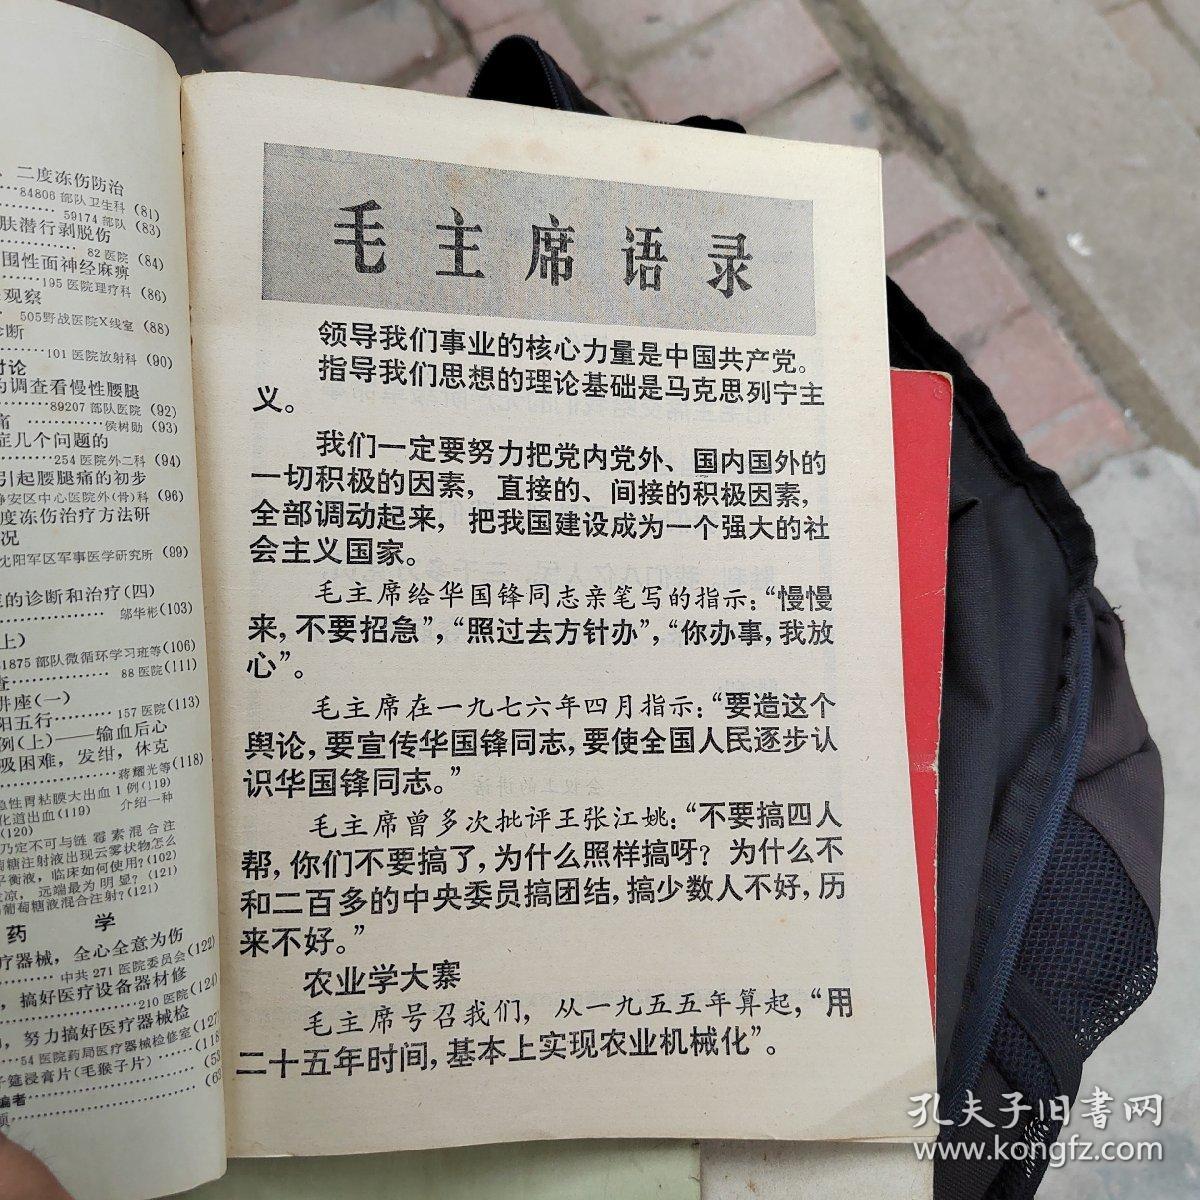 二度冻伤防治
84806 部队卫生科 (81)
59174 部队 (83)
肤潜行剥脱伤
82 医院 (84)
围性面神经麻痹
195 医院理疗科 (86)
观察
505野战医院X线室 (88)
诊断
101 医院放射科 (90)
讨论
调查看慢性腰腿
89207 部队医院 (92)
痛 …………侯树勋 (93)
症几个问题的
254 医院外二科 (94)
引起腰腿痛的初步
静安区中心医院外(骨)科 (96)
度冻伤治疗方法研
况
沈阳军区军事医学研究所 (99)
的诊断和治疗(四)
邬华彬(103)
上)
81875 部队微循环学习班等(106)
查………………88 医院(111)
讲座(一)
阳五行………157 医院(113)
例(上)——输血后心
吸困难，发绀，休克
蒋耀光等(118)
急性胃粘膜大出血 1 例(119)
化道出血(119) 介绍一种
(120)
乃定不可与链霉素混合注
萄糖注射液出现云雾状物怎么
平衡液，临床如何使用？(102)
发凉，远端最为明显？(121)
葡萄糖液混合注射？(121)
药 学
疗器械，全心全意为伤
中共 271 医院委员会(122)
，搞好医疗设备器材修
210 医院(124)
，努力搞好医疗器械检
54 医院药局医疗器械检修室(127
子筵浸膏片(毛猴子片)……(118
编者………………(53
(63
毛主席语录
领导我们事业的核心力量是中国共产党。
指导我们思想的理论基础是马克思列宁主
义。
我们一定要努力把党内党外、国内国外的
一切积极的因素，直接的、间接的积极因素，
全部调动起来，把我国建设成为一个强大的社
会主义国家。
毛主席给华国锋同志亲笔写的指示：“慢慢
来，不要招急”，“照过去方针办”，“你办事，我放
心”。
毛主席在一九七六年四月指示：“要造这个
舆论，要宣传华国锋同志，要使全国人民逐步认
识华国锋同志。”
毛主席曾多次批评王张江姚：“不要搞四人
帮，你们不要搞了，为什么照样搞呀？为什么不
和二百多的中央委员搞团结，搞少数人不好，历
来不好。”
农业学大寨
毛主席号召我们，从一九五五年算起，“用
二十五年时间，基本上实现农业机械化”。
孔夫子旧书网
www.kongfz.com